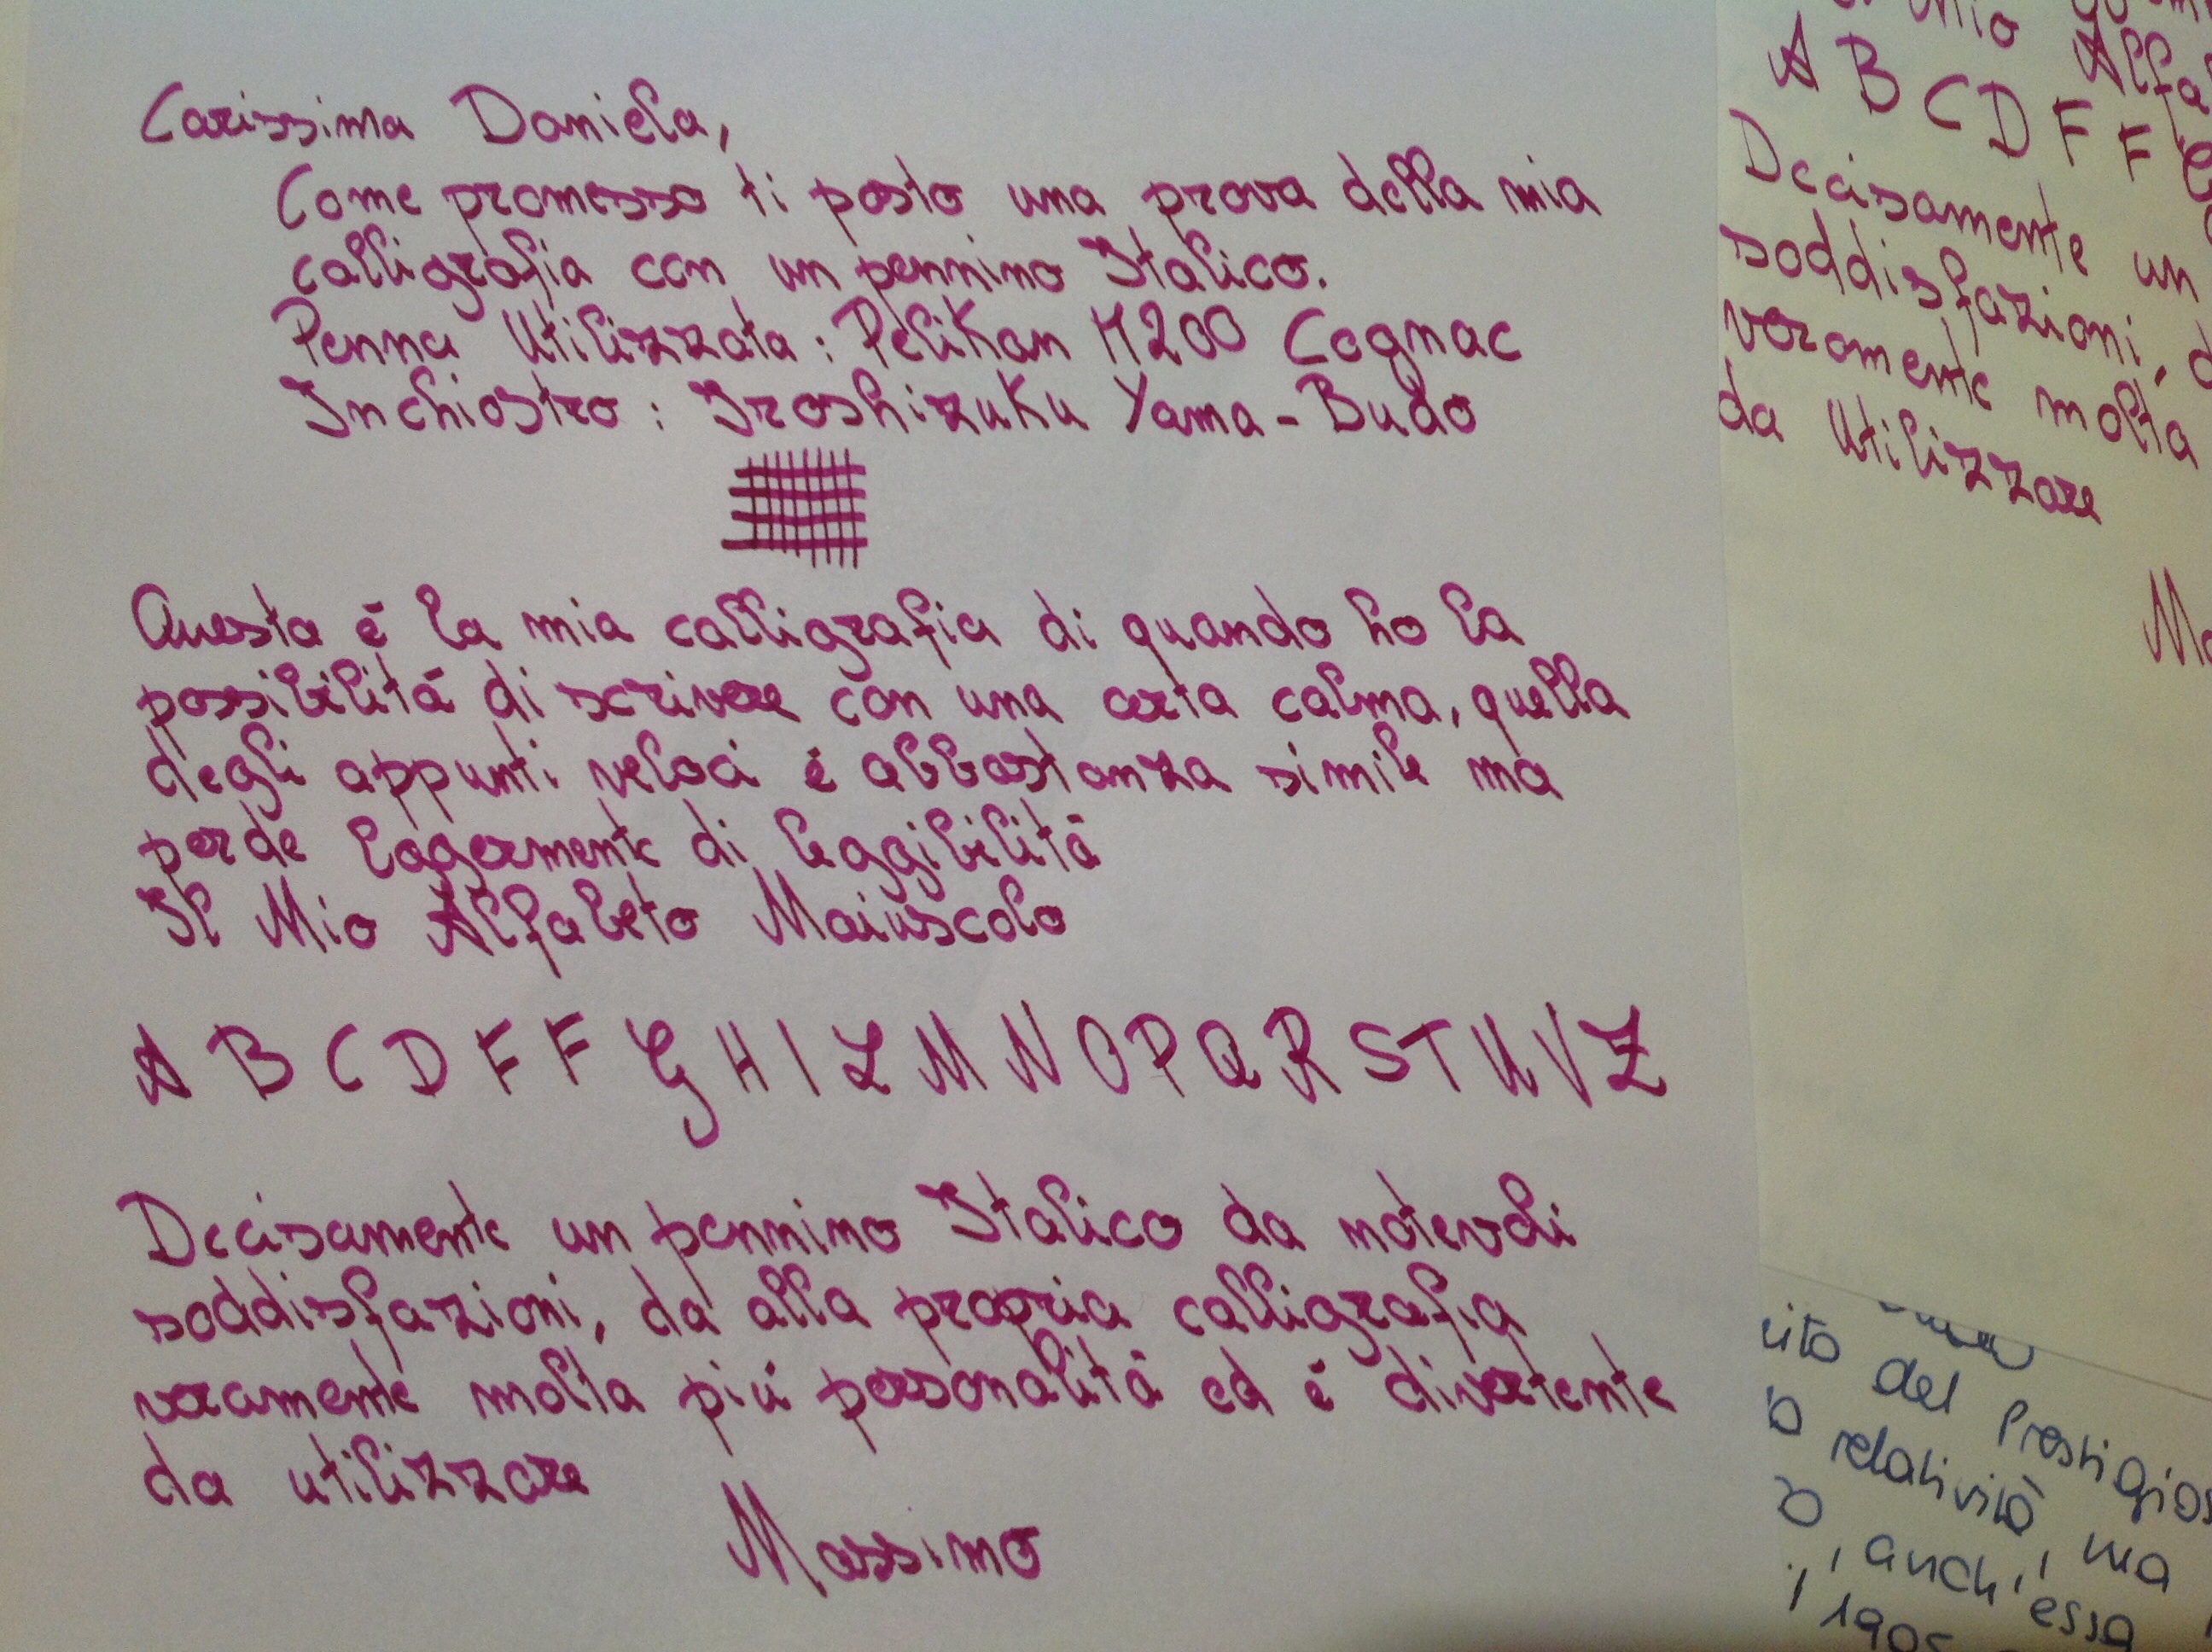 Carissima Daniela,
Come promesso ti posto una prova della mia
calligrafia con un pennino Italico.
Penna Utilizzata : Pelikan M200 Cognac
Inchiostro : Iroshizuku Yama-Budo
Questa é la mia calligrafia di quando ho la
possibilitá di scrivere con una certa calma, quella
degli appunti veloci é abbastanza simile ma
perde legermente di leggibilitá
Il Mio Alfabeto Maiuscolo
A B C D E F G H I L M N O P Q R S T U V Z
Decisamente un pennino Italico da notevoli
soddisfazioni, da' alla propria calligrafia
veramente molta piú personalitá ed é divertente
da utilizzare
Massimo
mio
Alfa
A B C D E F G
Decisamente un
soddisfazioni, d
veramente molta
da Utilizzare
Ma
uito del Prestigios
relatività, ma
, anch'essa
1905